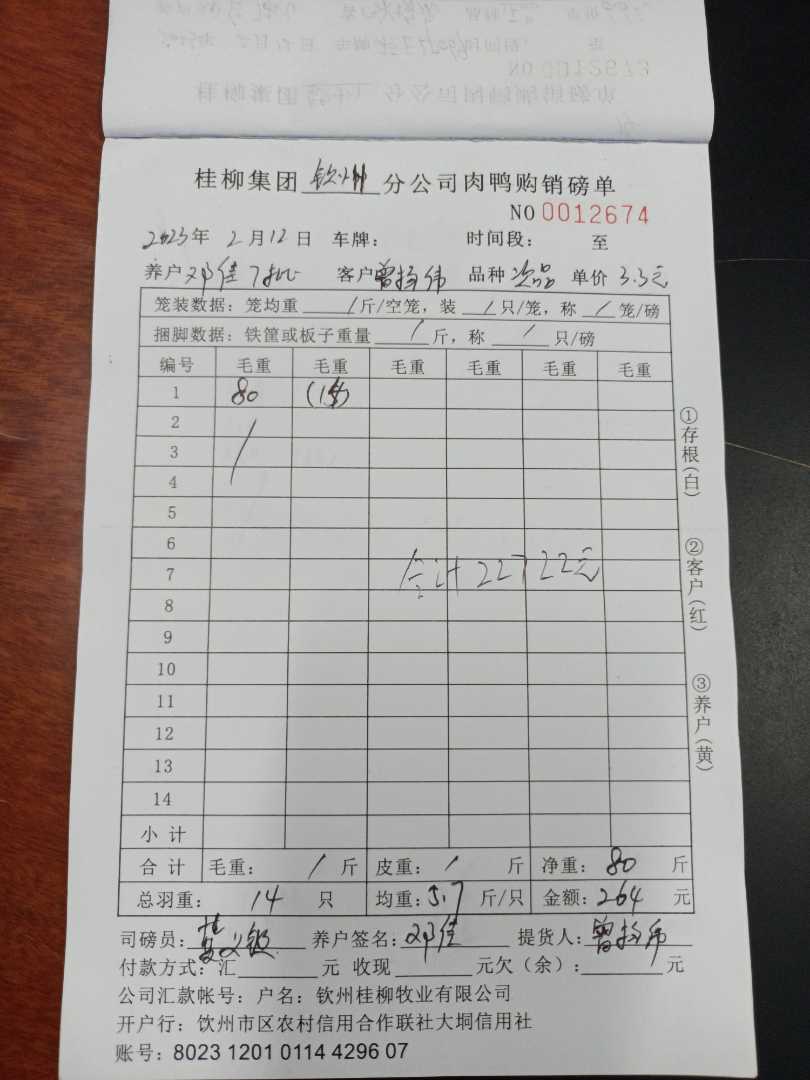 NO 0012673
桂柳集团 钦州 分公司肉鸭购销磅单
NO 0012674
2023年 2月12日 车牌： 时间段： 至
养户 邓佳 客户 曾扬伟 品种 次品 单价 3.3元
笼装数据：笼均重 / 斤/空笼，装 / 只/笼，称 / 笼/磅
捆脚数据：铁筐或板子重量 / 斤，称 / 只/磅
编号 毛重 毛重 毛重 毛重 毛重 毛重
1 80
2
3
4
5
6
7
合计22722元
8
9
10
11
12
13
14
小计
合计 毛重： / 斤 皮重： / 斤 净重：80 斤
总羽重： 14 只 均重：5.7 斤/只 金额：264 元
司磅员： 养户签名：邓佳 提货人：曾扬伟
付款方式：汇 元 收现 元欠（余）： 元
公司汇款帐号：户名：钦州桂柳牧业有限公司
开户行：饮州市区农村信用合作联社大垌信用社
账号：8023 1201 0114 4296 07
①存根（白）
②客户（红）
③养户（黄）